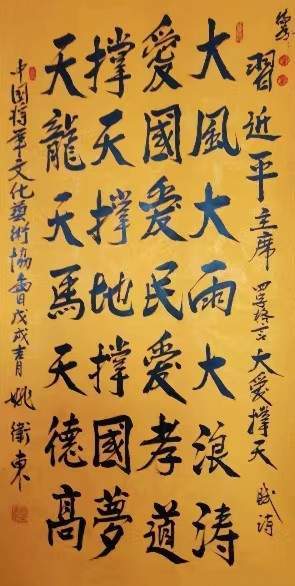 習近平主席 大愛撑天 賦詩
大風大雨大浪涛
愛國愛民愛孝道
撑天撑地撑國夢
天龍天馬天德高
中国将军文化藝術協會 戊戌 姚衛東